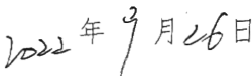 2022年9月26日